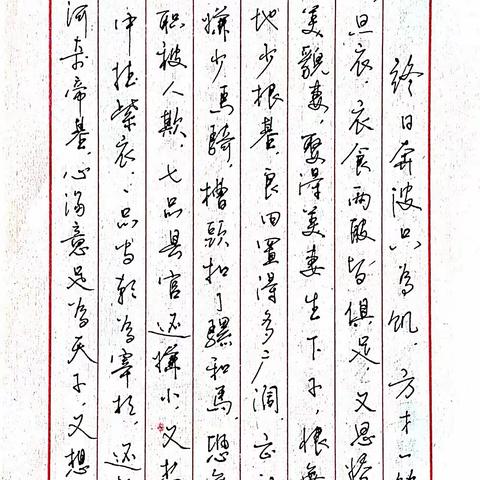 終日奔波只为饥，方才一
衣，衣食两般皆俱足，又思
美貌妻，娶得美妻生下子，恨無
地少根基，良田置得多广阔，出
嫌少馬騎，槽頭扣了騾和馬，恐
职被人欺，七品县官还嫌小，又
中挂紫衣，一品当朝为宰相，还
河夺帝基，心满意足为天子，又想